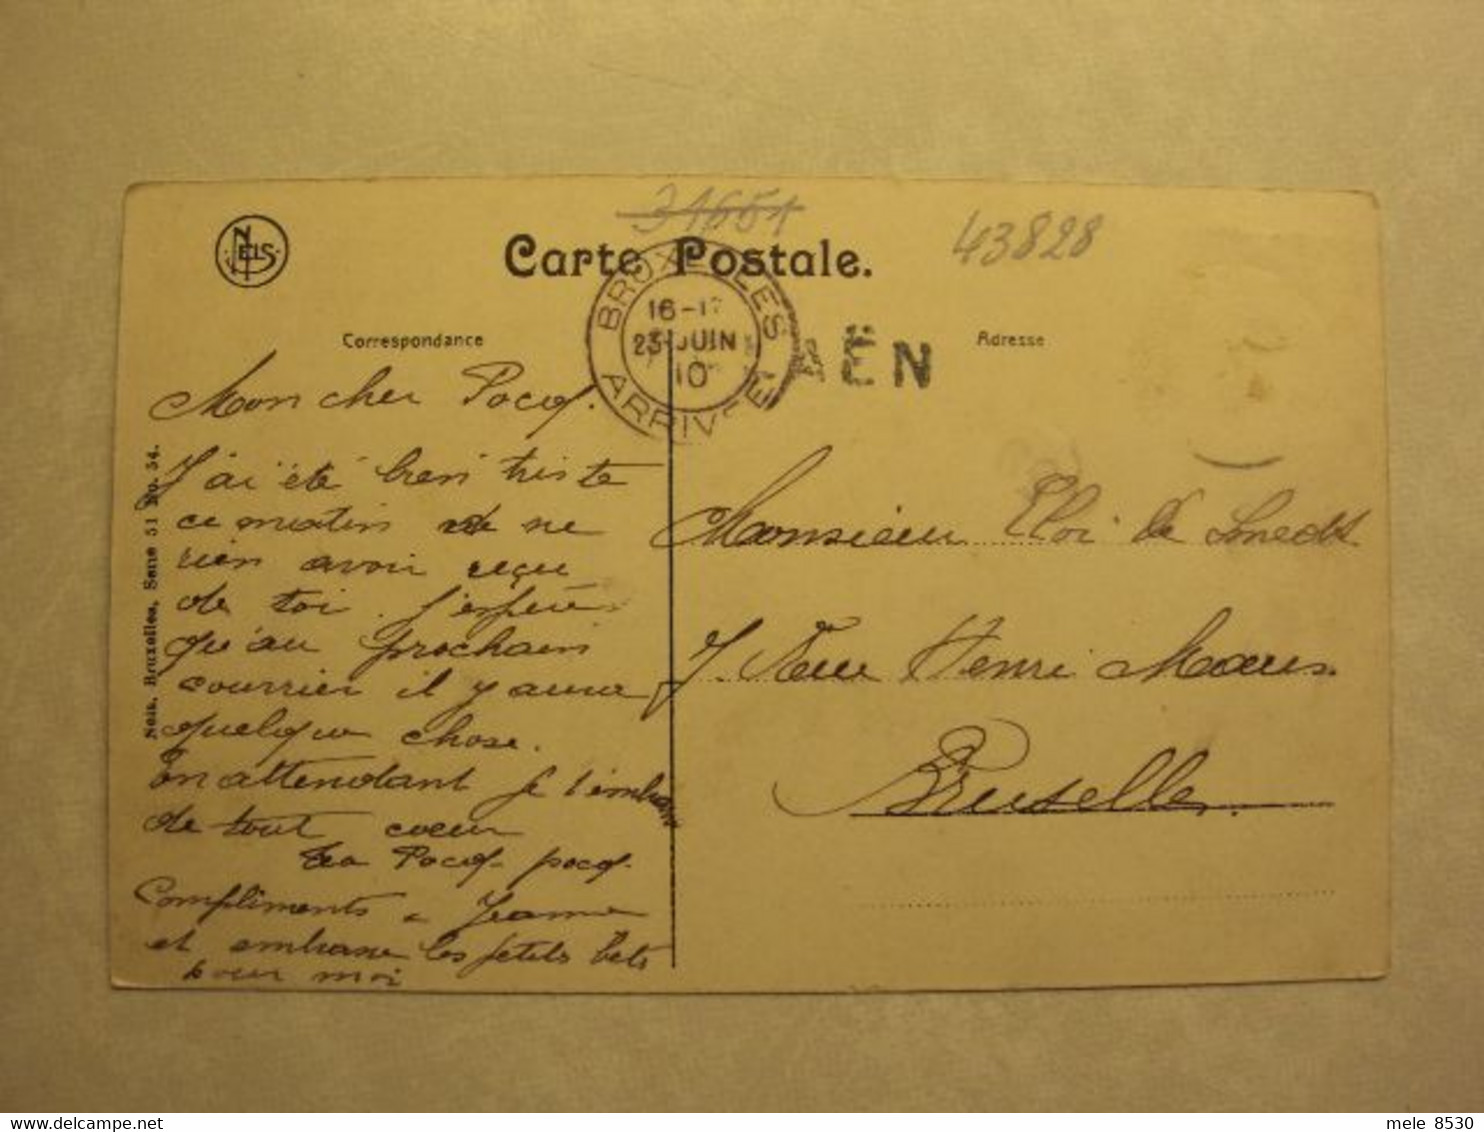 31651
43828
NELS
Carte Postale.
BRUXELLES
16-1
23 JUIN
10
ARRIVÉE
AËN
Correspondance
Adresse
Mon cher Pocq.
J'ai été bien triste
ce matin de ne
rien avoir reçu
de toi. J'espère
qu'au prochain
courrier il y aura
quelque chose.
En attendant je t'embrasse
de tout coeur
ta Pocq-pocq.
Compliments à Jeanne
et embrasse les petits bets
pour moi
Monsieur Eloi de Smedt
7. Rue Henri Maus.
Bruxelles.
Nels, Bruxelles, Serie 51 No. 54.
delcampe.net
mele 8530